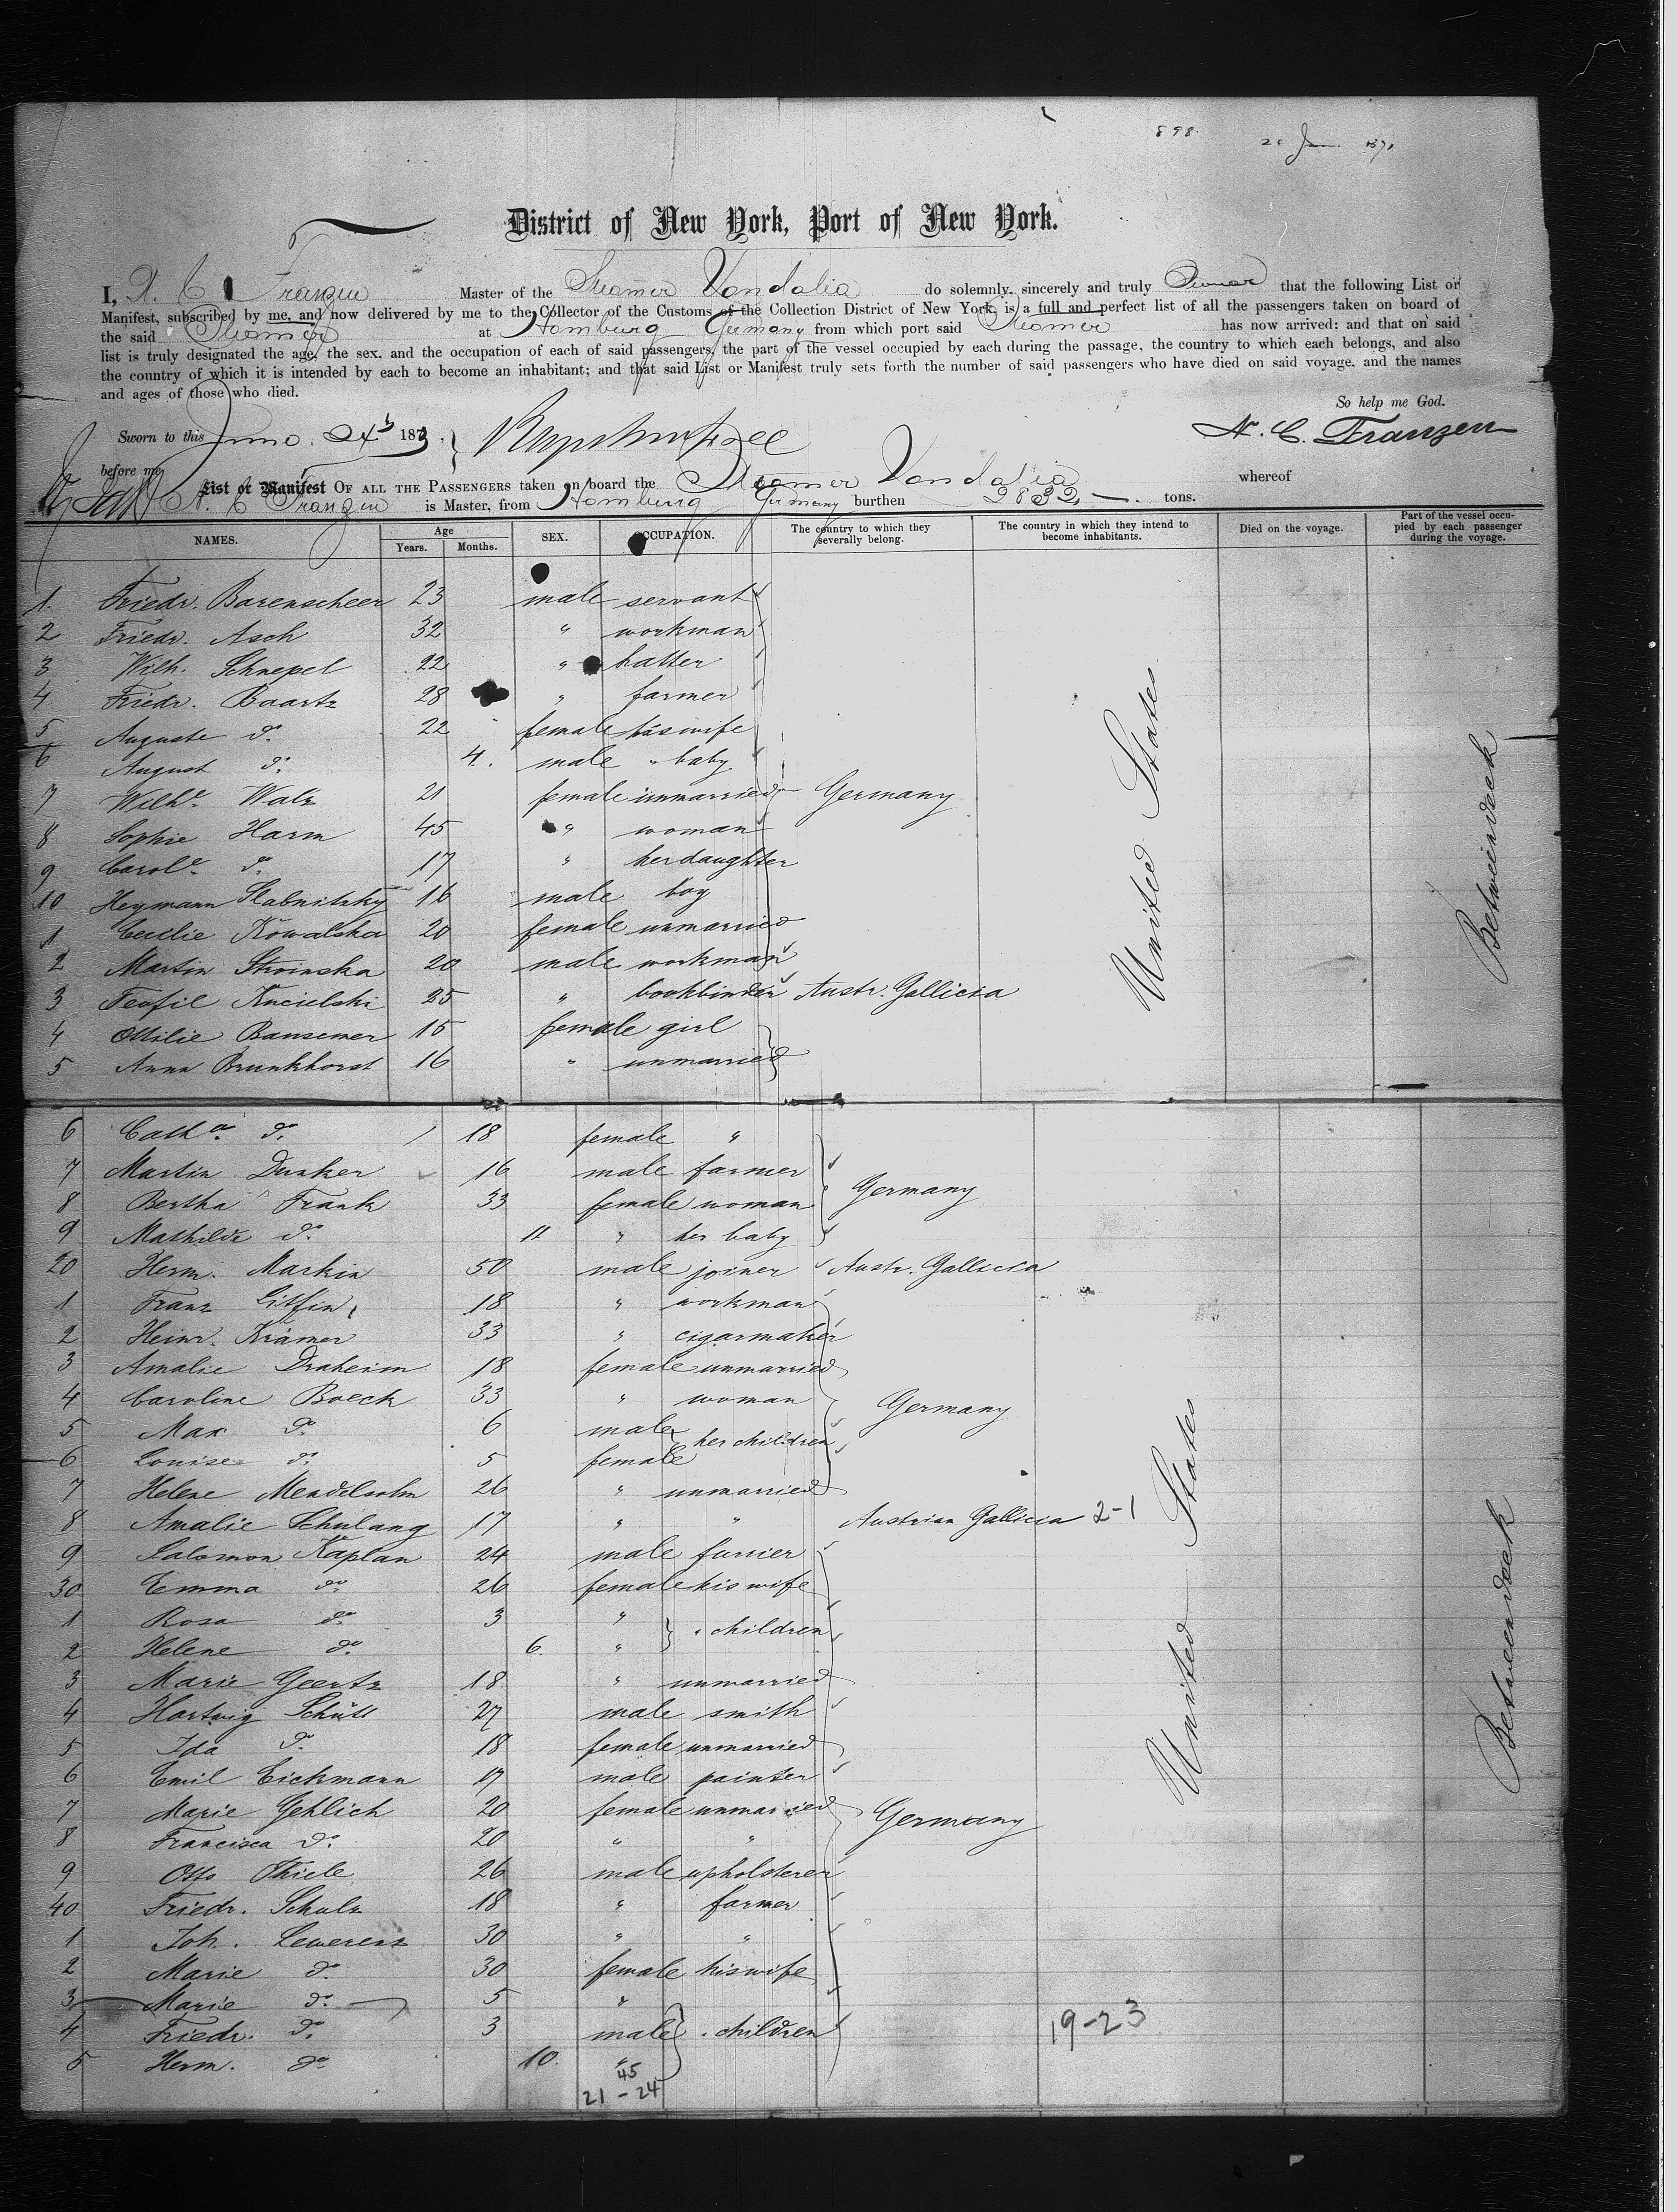 898.
District of New York, Port of New York.
I, N. C. Franzen Master of the Steamer Vandalia do solemnly, sincerely and truly Swear that the following List or
Manifest, subscribed by me, and now delivered by me to the Collector of the Customs of the Collection District of New York, is a full and perfect list of all the passengers taken on board of
the said Steamer at Hamburg Germany from which port said Steamer has now arrived: and that on said
list is truly designated the age, the sex, and the occupation of each of said passengers, the part of the vessel occupied by each during the passage, the country to which each belongs, and also
the country of which it is intended by each to become an inhabitant; and that said List or Manifest truly sets forth the number of said passengers who have died on said voyage, and the names
and ages of those who died.
So help me God.
Sworn to this 187 N. C. Franzen
before me
List or Manifest OF ALL THE PASSENGERS taken on board the Steamer Vandalia whereof
N. C. Franzen is Master, from Hamburg Germany burthen tons.
NAMES. Age Years. Months. SEX. OCCUPATION. The country to which they severally belong. The country in which they intend to become inhabitants. Died on the voyage. Part of the vessel occupied by each passenger during the voyage.
1. Friedr. Barenscheer 23 male servant
2 Friedr. Asch 32 " workman
3 Wilh. Schnepel 22 " hatter
4 Friedr. Baartz 28 " farmer
5 Auguste do. 22 female his wife
6 August do. 4. male " baby
7 Wilhe. Walz 21 female unmarried Germany
8 Sophie Harm 45 " woman
9 Carole. do. 17 " her daughter
10 Heymann Slabnitzky 16 male boy
1 Cecilie Kowalska 20 female unmarried
2 Martin Stroinska 20 male workman
3 Teofil Kncielski 25 " bookbinder Austr. Gallicia
4 Ottilie Bansemer 15 female girl
5 Anna Brunkhorst 16 " unmarried
United States
Betweendeck
6 Catha. do. 18 female "
7 Martin Dunker 16 male farmer
8 Bertha Frank 33 female woman Germany
9 Mathilde do. 11 " her baby
20 Herm. Markin 50 male joiner Austr. Gallicia
1 Franz Litfin 18 " workman
2 Heinr. Krämer 33 " cigarmaker
3 Amalie Draheim 18 female unmarried
4 Caroline Boeck 33 " woman Germany
5 Max do. 6 male her children
6 Louise do. 5 female
7 Helene Mendelsohn 26 " unmarried
8 Amalie Schulang 17 " " Austrian Gallicia 2-1
9 Salomon Kaplan 24 male furrier
30 Emma do. 26 female his wife
1 Rosa do. 3 " " children
2 Helene do. 6. "
3 Marie Geertz 18 " unmarried
4 Hartwig Schütt 27 male smith
5 Ida do. 18 female unmarried
6 Emil Eickmann 17 male painter
7 Marie Gehlich 20 female unmarried Germany
8 Francisca do. 20 " "
9 Otto Thiele 26 male upholsterer
40 Friedr. Schulz 18 " farmer
1 Joh. Lewerenz 30 " "
2 Marie do. 30 female his wife
3 Marie do. 5 "
4 Friedr. do. 3 male " children 19-23
5 Herm. do. 10. "
45
21 - 24
United States
Betweendeck